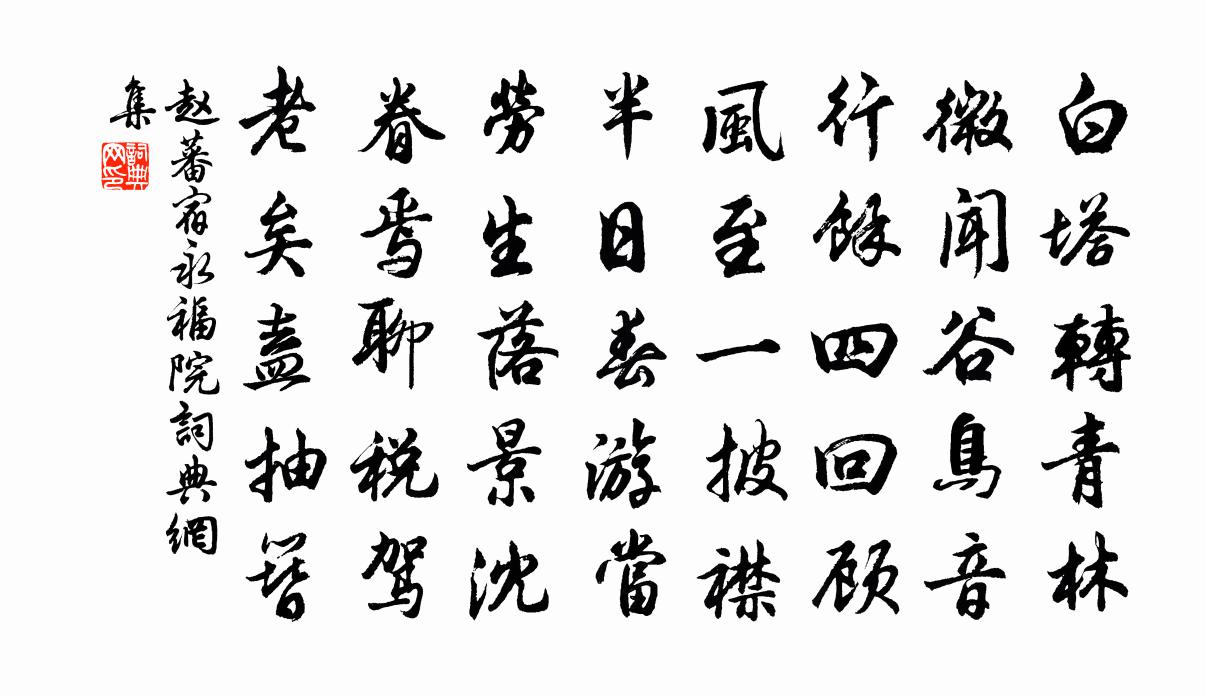 白塔轉青林
微聞谷鳥音
行餘四回顾
風至一披襟
半日春游當
勞生落景沈
眷焉聊税驾
老矣盍抽簪
赵蕃宿永福院詞典網
集
詞典
网印